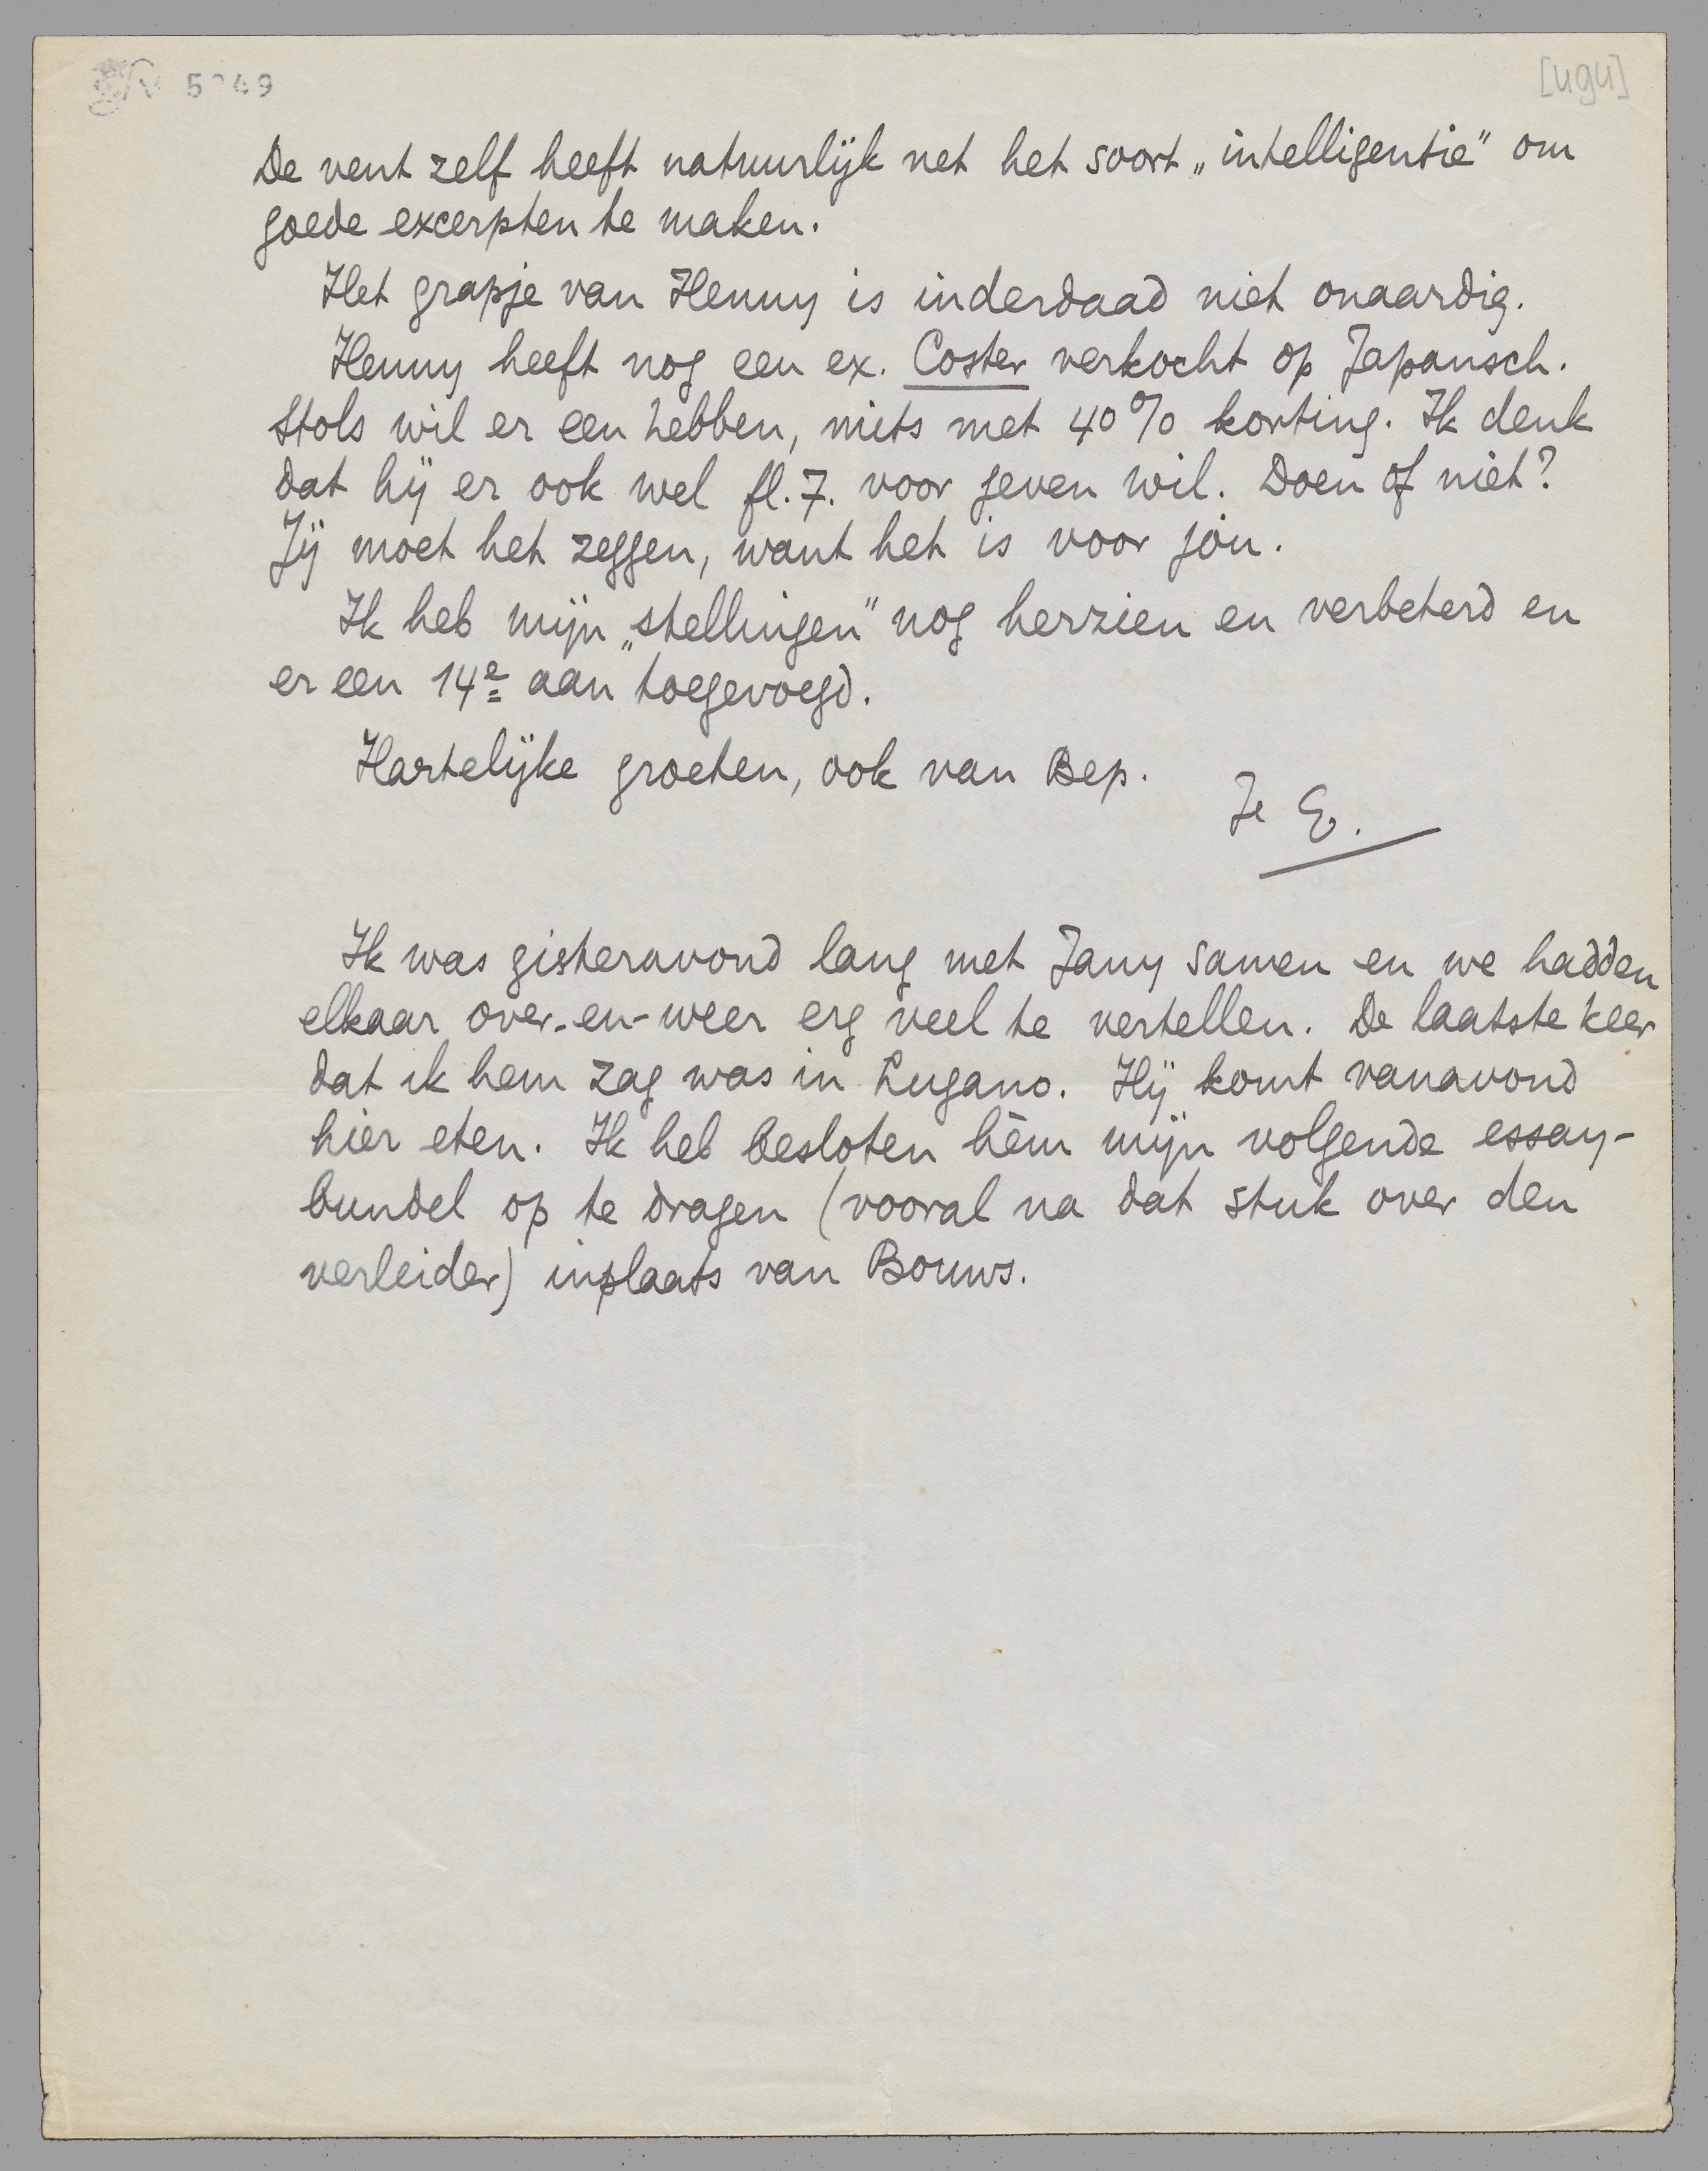 [494]
De vent zelf heeft natuurlijk net het soort „intelligentie" om
goede excerpten te maken.
Het grapje van Henny is inderdaad niet onaardig.
Henny heeft nog een ex. Coster verkocht op Japansch.
Stols wil er een hebben, mits met 40% korting. Ik denk
dat hij er ook wel fl. 7. voor geven wil. Doen of niet?
Jij moet het zeggen, want het is voor jòu.
Ik heb mijn „stellingen" nog herzien en verbeterd en
er een 14e aan toegevoegd.
Hartelijke groeten, ook van Bep.
Je E.
Ik was gisteravond lang met Jany samen en we hadden
elkaar over-en-weer erg veel te vertellen. De laatste keer
dat ik hem zag was in Lugano. Hij komt vanavond
hier eten. Ik heb besloten hèm mijn volgende essay-
bundel op te dragen (vooral na dat stuk over den
verleider) inplaats van Bouws.